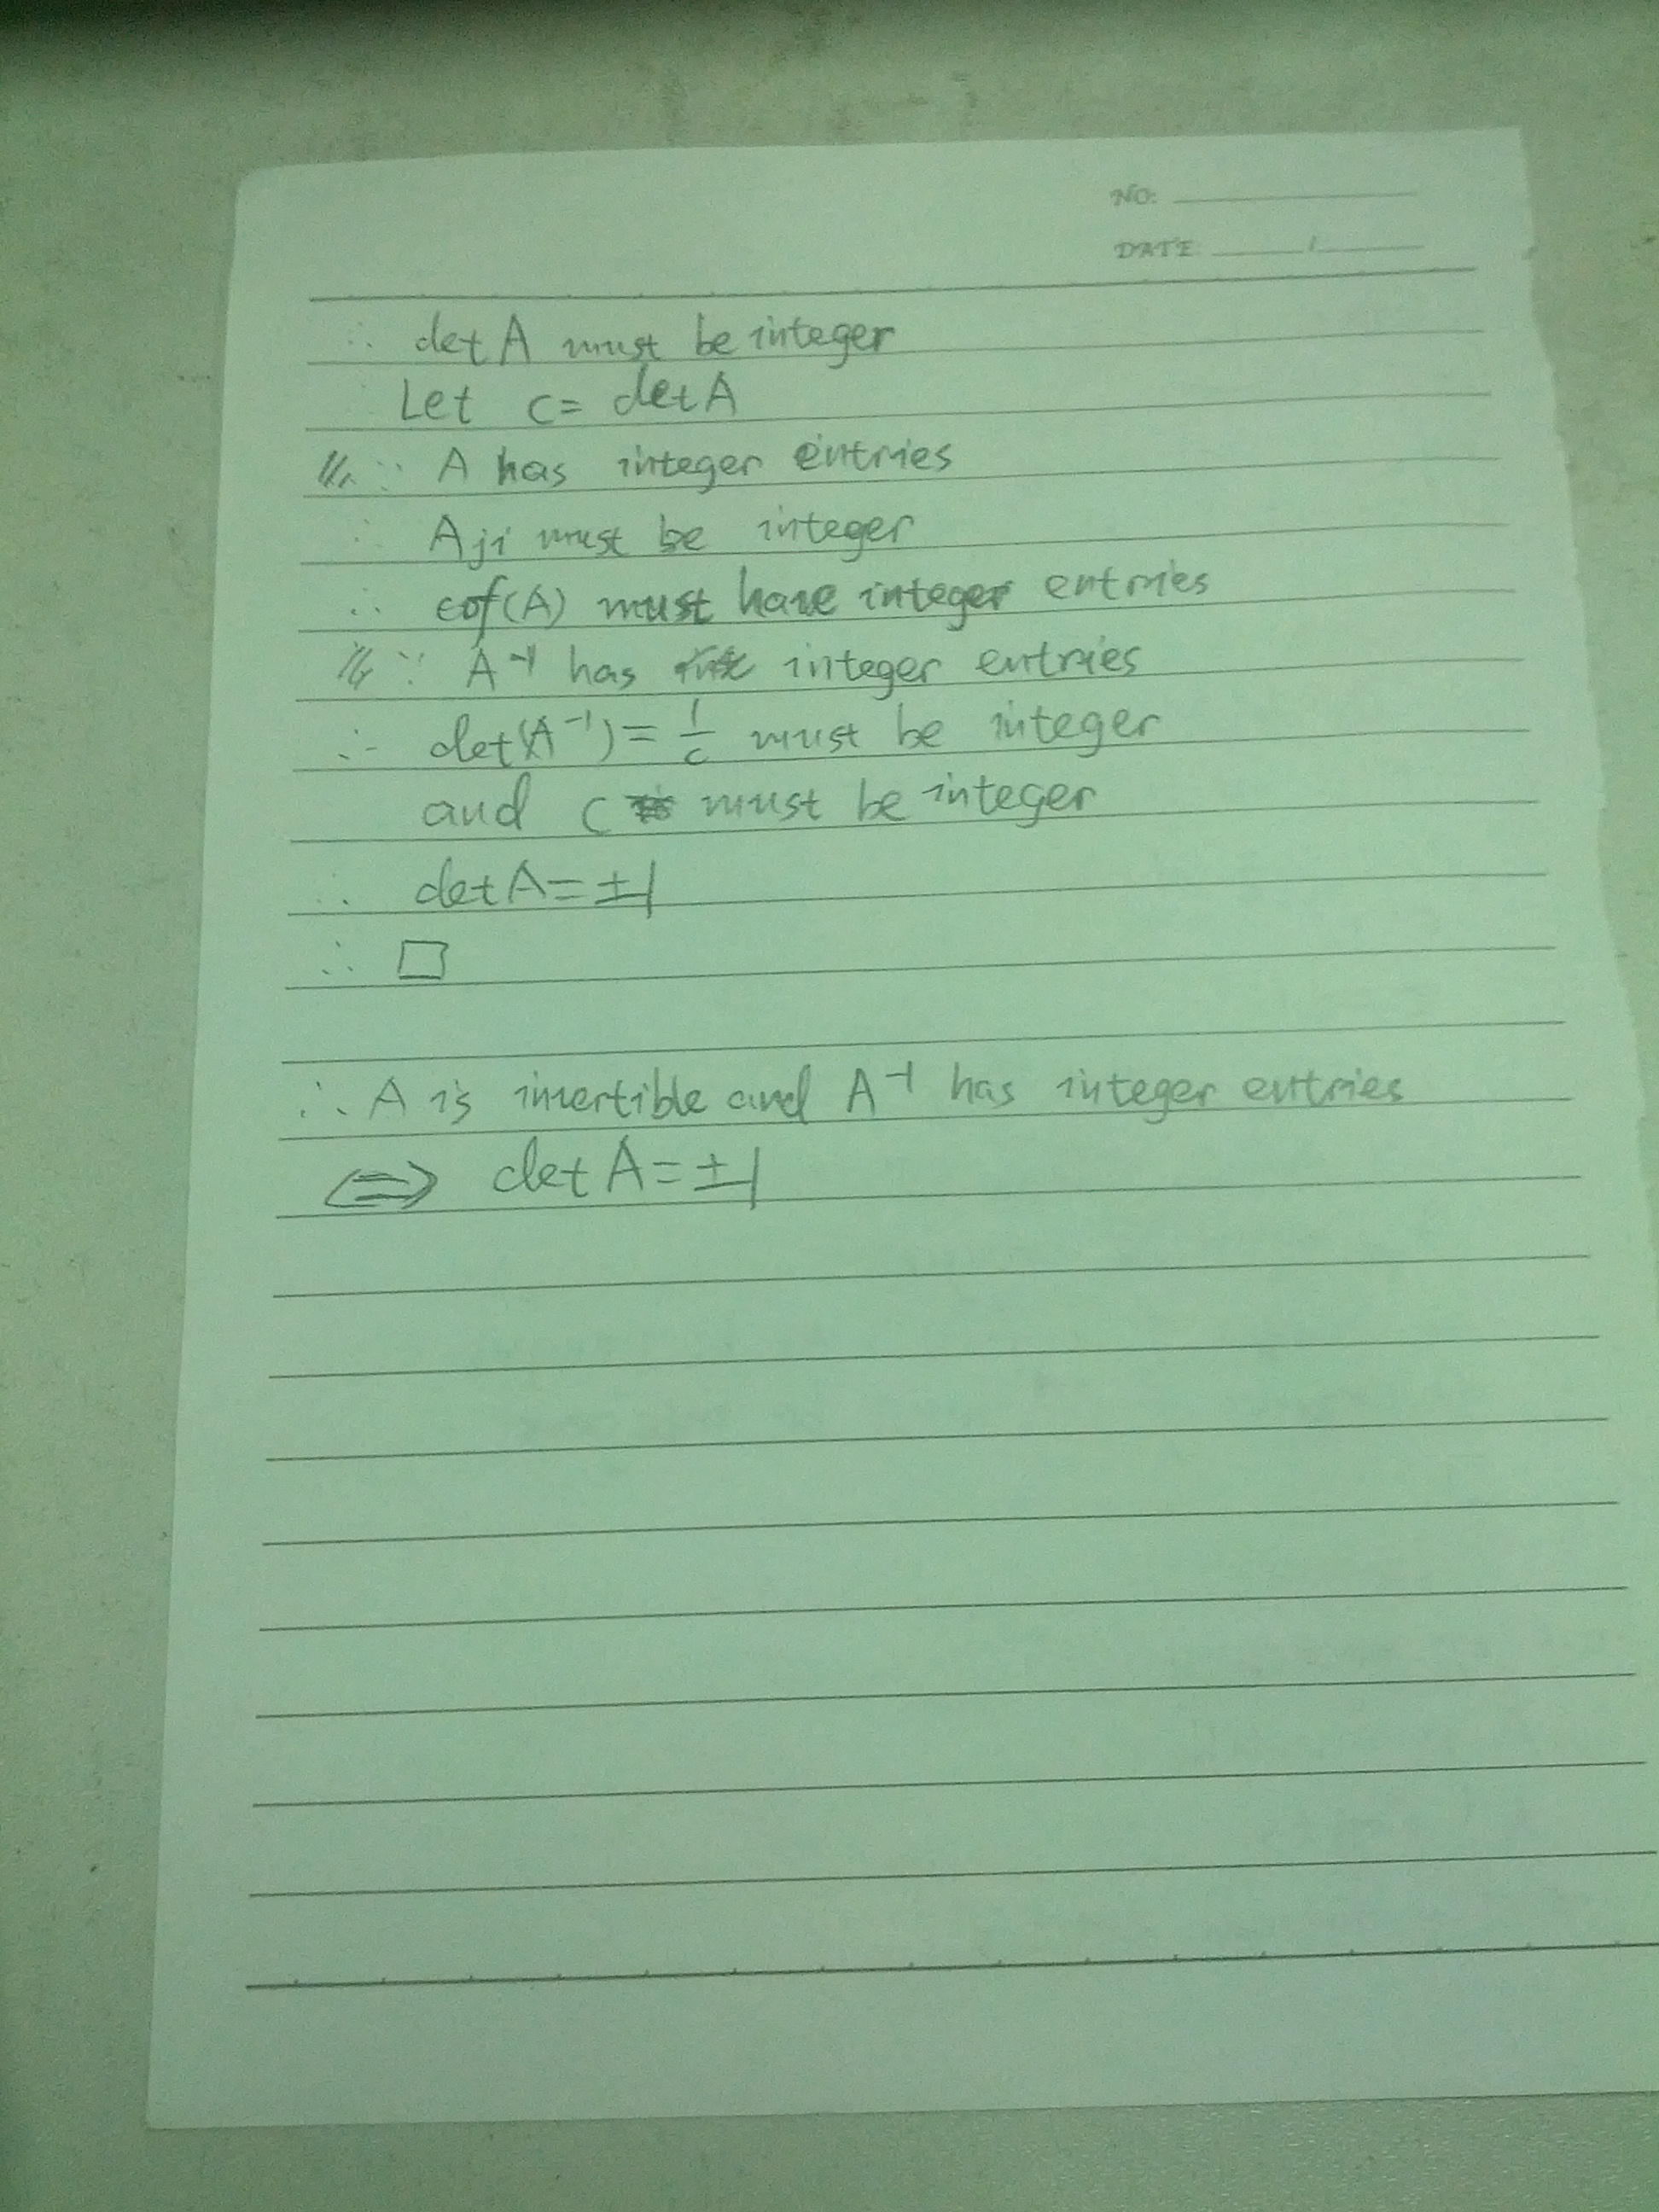 NO:
DATE /
∴ det A must be integer
Let c = det A
∵ A has integer entries
∴ Aji must be integer
∴ cof(A) must have integer entries
∵ A⁻¹ has integer entries
∴ det(A⁻¹) = 1/c must be integer
and c must be integer
∴ det A = ±1
∴ □
∴ A is invertible and A⁻¹ has integer entries
⟺ det A = ±1